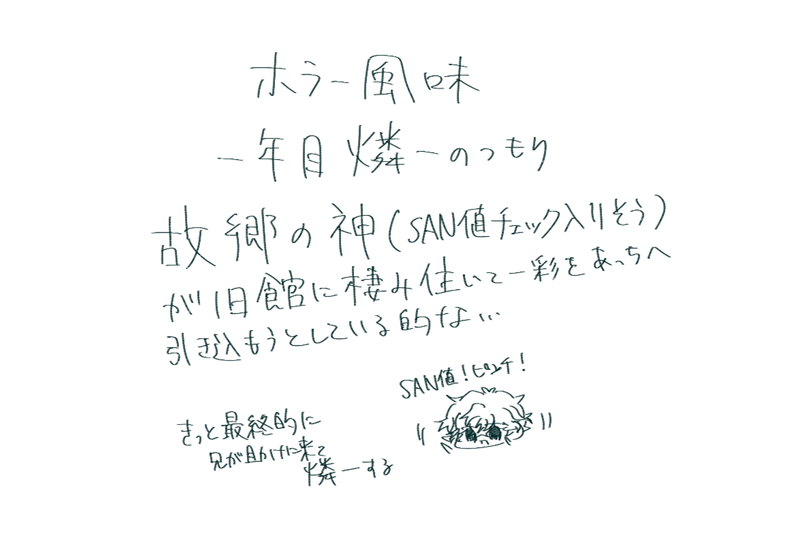 ホラー風味
一年目燐一のつもり
故郷の神(SAN値チェック入りそう)
が旧館に棲み住いて一彩をあっちへ
引き込もうとしている的な…
SAN値!ピンチ!
きっと最終的に
兄が助けに来て
燐一する